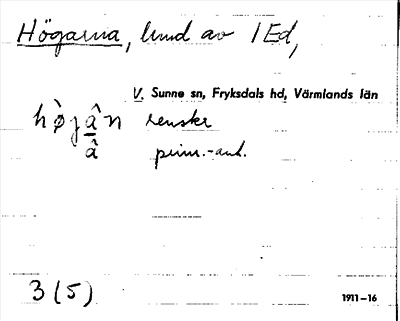 Högarna, lund av 1Ed,
V. Sunne sn, Fryksdals hd, Värmlands län
hø̀jân
â
prim.-ant.
3(5)
1911–16